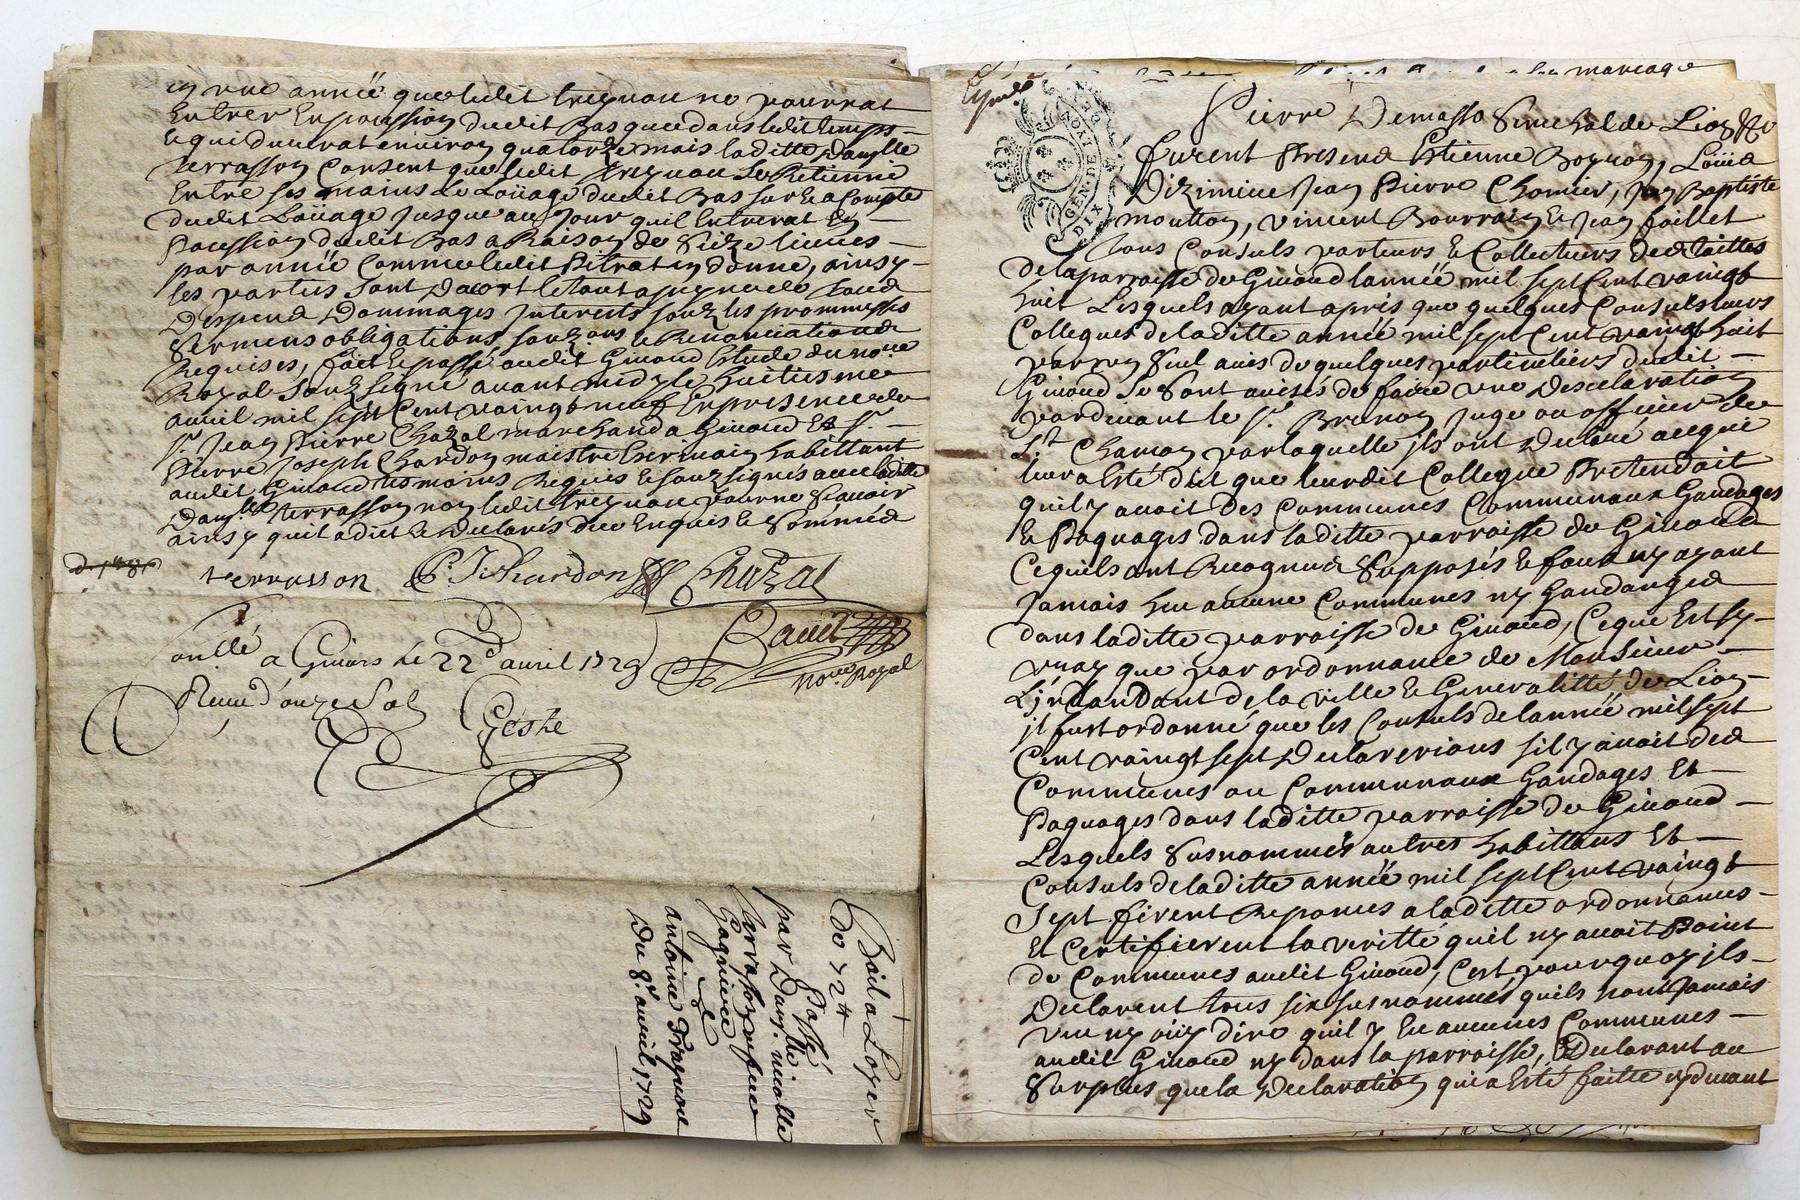 une année que ledit Fraguau ne pourrat
Entrer En possession dudit Bas que dans ledit temps
quidurerat environ quatorze mois laditte Damlle
Terrasson Consent que ledit se Retienne
Entre ses mains le Loüage dudit Bas sur Et a Compte
dudit Loüage Jusque au Jour quil Entrerat En
Possession dudit Bas a Raison de Seize livres
par année Comme ledit en donne, ainsy
les parties sont dacort le tout a peyne de tous
Despens Dommages Interets soubz les prommesses
Sermens obligations soubzons le Renonciations
Requises, fait et passé audit Givord Estude du nore
Royal Soubsigné avant midy le huitiesme
avril mil sept Cent vaingt neuf En presence de
Sr. Jean Pierre Chazal marchand a Givord Et Sr.
Pierre Joseph Chardon maistre habittant
audit Givord tesmoins Requis et soubsignés avec laditte
Damlle terrasson non ledit pour ne Scavoir
ainsy quil a dit et declaré de ce Enquis Et Sommé
terrasson P. J. Chardon Chazal
Ravit
nore Royal
Conllé a Givors le 22d avril 1729
Receu d'onze Sols
Geshe
Bail a Loyer
De 72 tt
Passé
par Damlle nicolle
Terrasson
Gagniere
a
antoine
Du 8e. avril 1729
mariage
GEN·DE·LYON
DIX
Pierre Demasso Senechal de Lion &c
furent Presens Estienne Boyron, Loüis
Dizimine Jean Pierre Chomier, Jean Baptiste
moutton, Vincent Bourrain Et Jean faillet
tous Consuls porteurs Et Collecteurs des tailles
de la parroisse de Givord lannée mil sept Cent vaingt
huit Lesquels ayant apris que quelques Consuls leurs
Collegues de laditte année mil sept Cent vaingt huit
par un Seul avis de quelques particuliers dudit
Givord Se sont avisés de faire une Desclaration
pardevant le Sr. Brunon Juge ou officier de
St Chamon par laquelle jls ont Declaré
leur a Esté dit que leurdit Collegue Pretendoit
quil y avoit Des Communes Communaux Gandages
Et Paquages dans laditte parroisse de Givord
Cequils ont Recognus Supposés Et faux ny ayant
Jamais heu aucune Communes ny Gandanges
dans laditte parroisse de Givord, Ceque Est sy
vray que par ordonnance de Monsieur
L'jntandant de la ville Et Generallitté de Lion
jl fust ordonné que les Consuls de lannée mil sept
Cent vaingt sept Declarerions sil y avoit des
Communes ou Communaux Gandages Et
Paquages dans laditte parroisse de Givord
Lesquels Susnommés autres habittans Et
Consuls de laditte année mil sept Cent vaingt
sept firent Reponces a laditte ordonnances
Et Certifierent la veritté quil ny avoit Point
de Communes audit Givord, Cest pourquoy jls
Declarent tous six susnommés quils nont Jamais
veu ny oüy dire quil y Eu aucunes Communes
audit Givord ny dans la parroisse, Declarant au
Surplus que la Declaration qui a Esté faitte cydevant